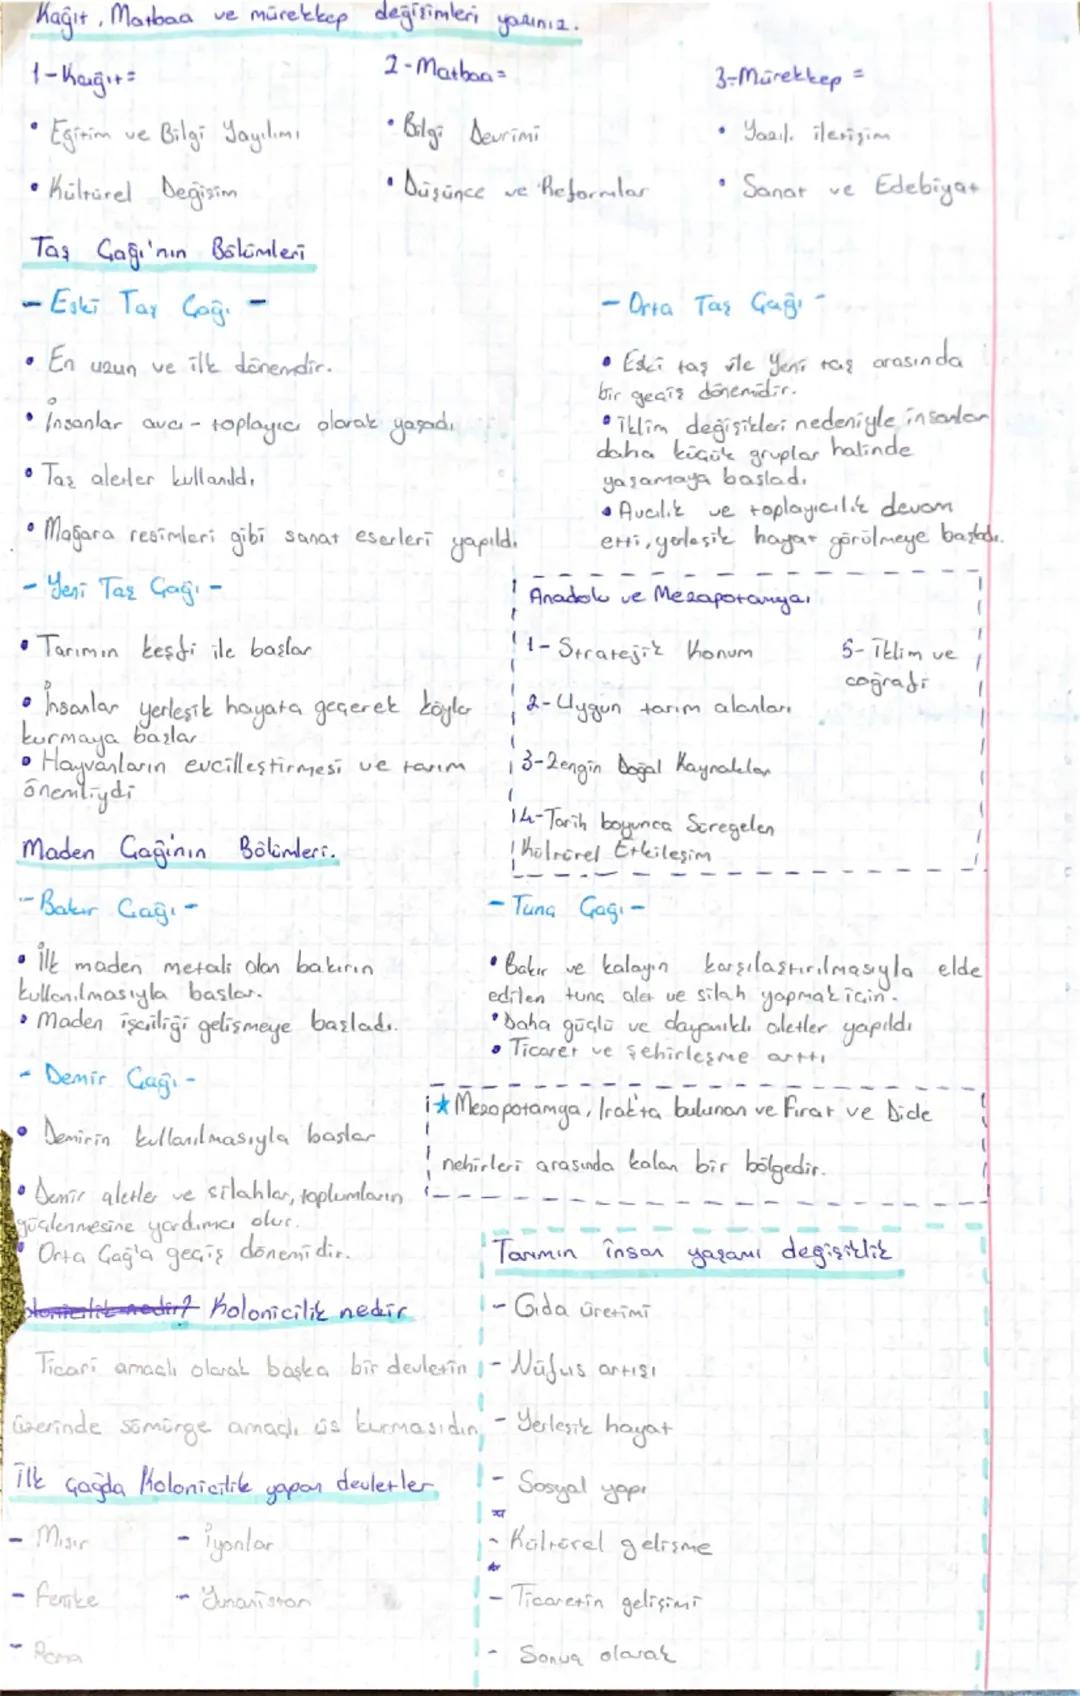 Kağıt, Matbaa ve mürekkep değişimleri yazınız.
1-Kağıt=
• Eğitim ve Bilgi Yayılımı
• Kültürel Değişim
2-Matbaa=
• Bilgi Devrimi
• Düşünce ve Reformlar
3-Mürekkep =
• Yazıl. iletişim
• Sanat ve Edebiyat
Taş Çağı'nın Bölümleri
- Eski Taş Çağı -
• En uzun ve ilk dönemdir.
• İnsanlar avcı - toplayıcı olarak yaşadı
• Taş aletler kullanıldı
• Mağara resimleri gibi sanat eserleri yapıldı
- Orta Taş Çağı -
• Eski taş ile Yeni taş arasında
bir geçiş dönemidir.
• İklim değişikleri nedeniyle insanlar
daha küçük gruplar halinde
yaşamaya başladı
• Avcılık ve toplayıcılık devam
etti, yerleşik hayat görülmeye başladı.
- Yeni Taş Çağı -
• Tarımın keşfi ile başlar
• İnsanlar yerleşik hayata geçerek köyler
kurmaya başlar
• Hayvanların evcilleştirmesi ve tarım
önemliydi
Anadolu ve Mezapotamya
1- Stratejik Konum
2- Uygun tarım alanları
3- Zengin Doğal Kaynaklar
4- Tarih boyunca Süregelen
Kültürel Etkileşim
5- İklim ve
coğrafi
Maden Çağının Bölümleri.
- Bakır Çağı -
• İlk maden metali olan bakırın
kullanılmasıyla başlar.
• Maden işçiliği gelişmeye başladı.
- Tunç Çağı -
• Bakır ve kalayın karşılaştırılmasıyla elde
edilen tunç alet ve silah yapmak için.
• Daha güçlü ve dayanıklı aletler yapıldı
• Ticaret ve şehirleşme arttı
- Demir Çağı -
• Demirin kullanılmasıyla başlar
• Demir aletler ve silahlar, toplumların
güçlenmesine yardımcı olur.
• Orta Çağ'a geçiş dönemidir.
★ Mezopotamya, Irak'ta bulunan ve Fırat ve Dicle
nehirleri arasında kalan bir bölgedir.
Kolonicilik nedir
Ticari amaçlı olarak başka bir devletin
üzerinde sömürge amaçlı üs kurmasıdır.
İlk çağda Kolonicilik yapan devletler
- Mısır
- Fenike
- Roma
- İyonlar
- Yunanistan
Tarımın insan yaşamı değişiklik
- Gıda üretimi
- Nüfus artışı
- Yerleşik hayat
- Sosyal yapı
- Kültürel gelişme
- Ticaretin gelişimi
- Sonuç olarak